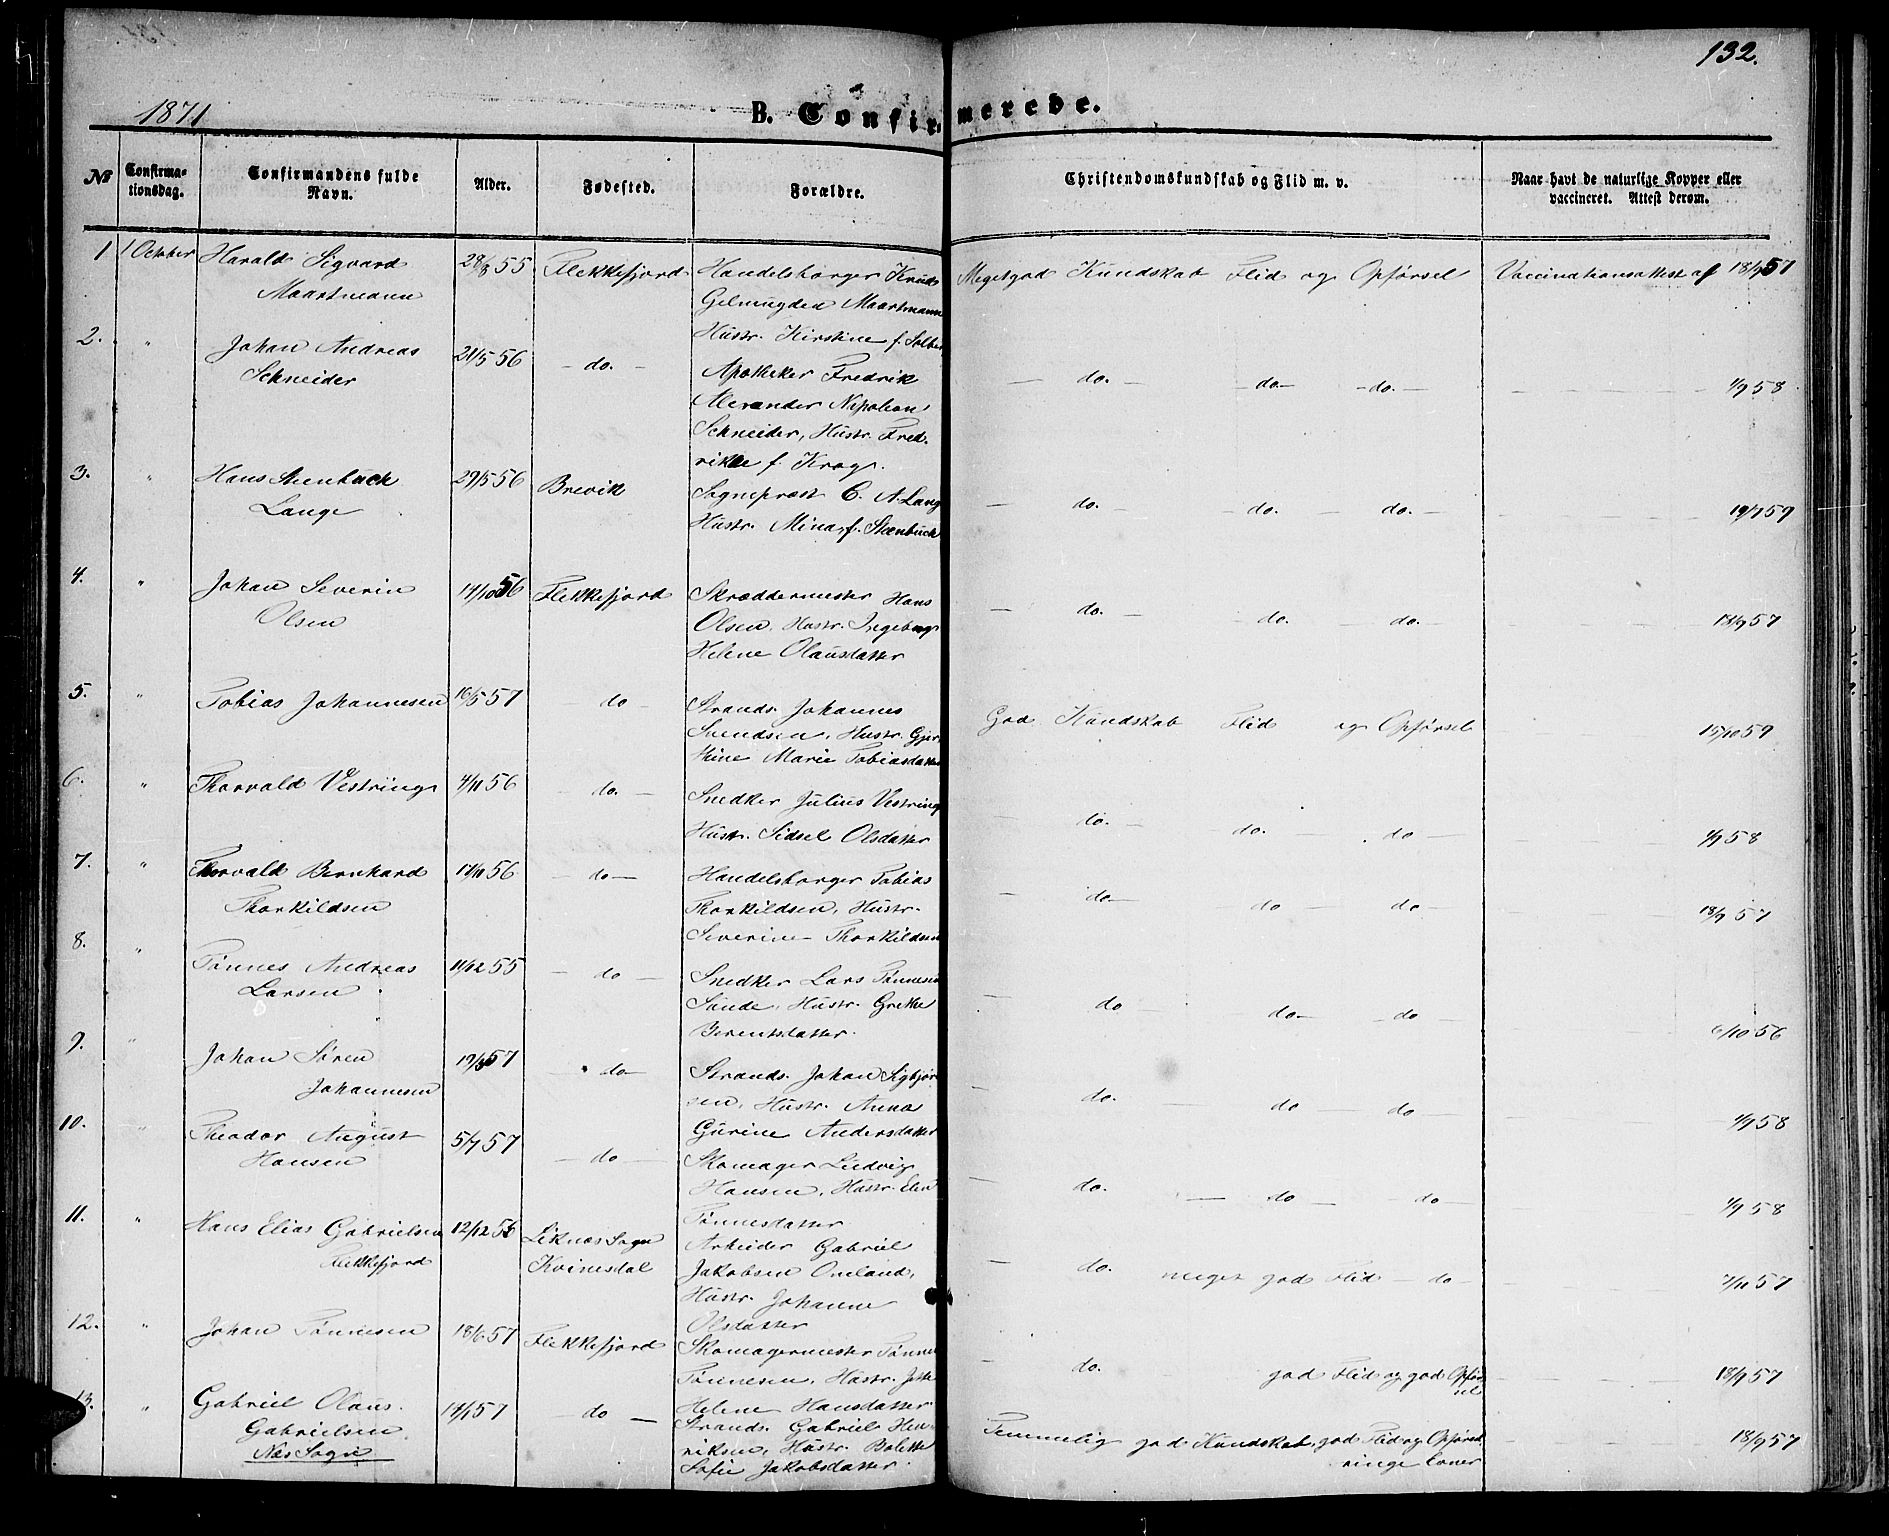 132.
1871
B. Confirmerede.
No Confirmationsdag. Confirmandens fulde Navn. Alder. Fødested. Forældre. Christendomskundskab og Flid m. v. Naar havt de naturlige Kopper eller vaccineret. Attest derom.
1 1 October Harald Sigvard 28/8 55 Flekkefjord Handelsborger Knud Megetgod Kundskab Flid og Opførsel Vaccinationsattest af 18/9 57
Maartmann Maartmann
Hustr. Kirstine f.
2. " Johan Andreas 21/5 56 - do. -
Schneider Apotheker Fredrik - do. - - do. - - do. - 1/9 58
Alexander Napoleon
Schneider, Hustr. Fred-
rikke f. Krog.
3. " Hans Steenbuch 29/5 56 Brevik Sogneprest C. A. Lang - do. - - do. - do. - 59
Lange Hustr. Mina, f. Steenbuch
4. " Johan Severin 14/10 56 Flekkefjord Skræddermester Hans - do. - - do. - do. 18/9 57
Olsen Olsen, Hustr. Ingeborg
Helene Olausdatter
5. " Tobias Johannesen 16/5 57 - do - Strands. Johannes God Kundskab Flid og Opførsel 15/10 59
Svendsen, Hustr.
Marie Tobiasdatter
6. " Thorvald Vestring 4/11 56 - do. - Snedker Julius Vestring - do. - do. - do - 1/9 58
Hustr. Sidsel Olsdatter
7. " Thorvald Bernhard 17/11 56 - do - Handelsborger Tobias - do - do - do - 18/9 57
Thorkildsen Thorkildsen, Hustr.
Severine Thorkildsen
8. " Tønnes Andreas 11/12 55 - do - Snedker Lars Tønnesen - do - do - - do - 6/10 56
Larsen Sunde, Hustr. Grethe
Berentsdatter.
9. " Johan Søren 57 - do - Strands. Johan Sigbjør- - do. - do - do - 1/9 58
Johannesen sen, Hustr. Anna
Gurine Andersdatter
10. " Theodor August 5/7 57 - do - Skomager Ludvig - do. - do - do - 1/9 58
Hansen Hansen, Hustr. Elen
Tønnesdatter
11. " Hans Elias Gabrielsen 12/12 56 Liknes Sogn Arbeider Gabriel - do. meget god Flid - do - 7/11 57
Flekkefjord Kvinesdal Jakobsen Omland,
Hustr. Johanne
Olsdatter
12. " Johan Tønnesen 18/6 57 Flekkefjord Skomagermester Tønnes - do. god Flid og god Opfør- 18/9 57
Tønnesen, Hustr. sel
Helene Hansdatter
13. " Gabriel Olaus 57 - do - Strands. Gabriel Hen- Temmelig god Kundskab, god Flid og Opførsel, 18/9 57
Gabrielsen riksen, Hustr. Bolette ringe Evner
Nes Sogn Sofie Jakobsdatter.